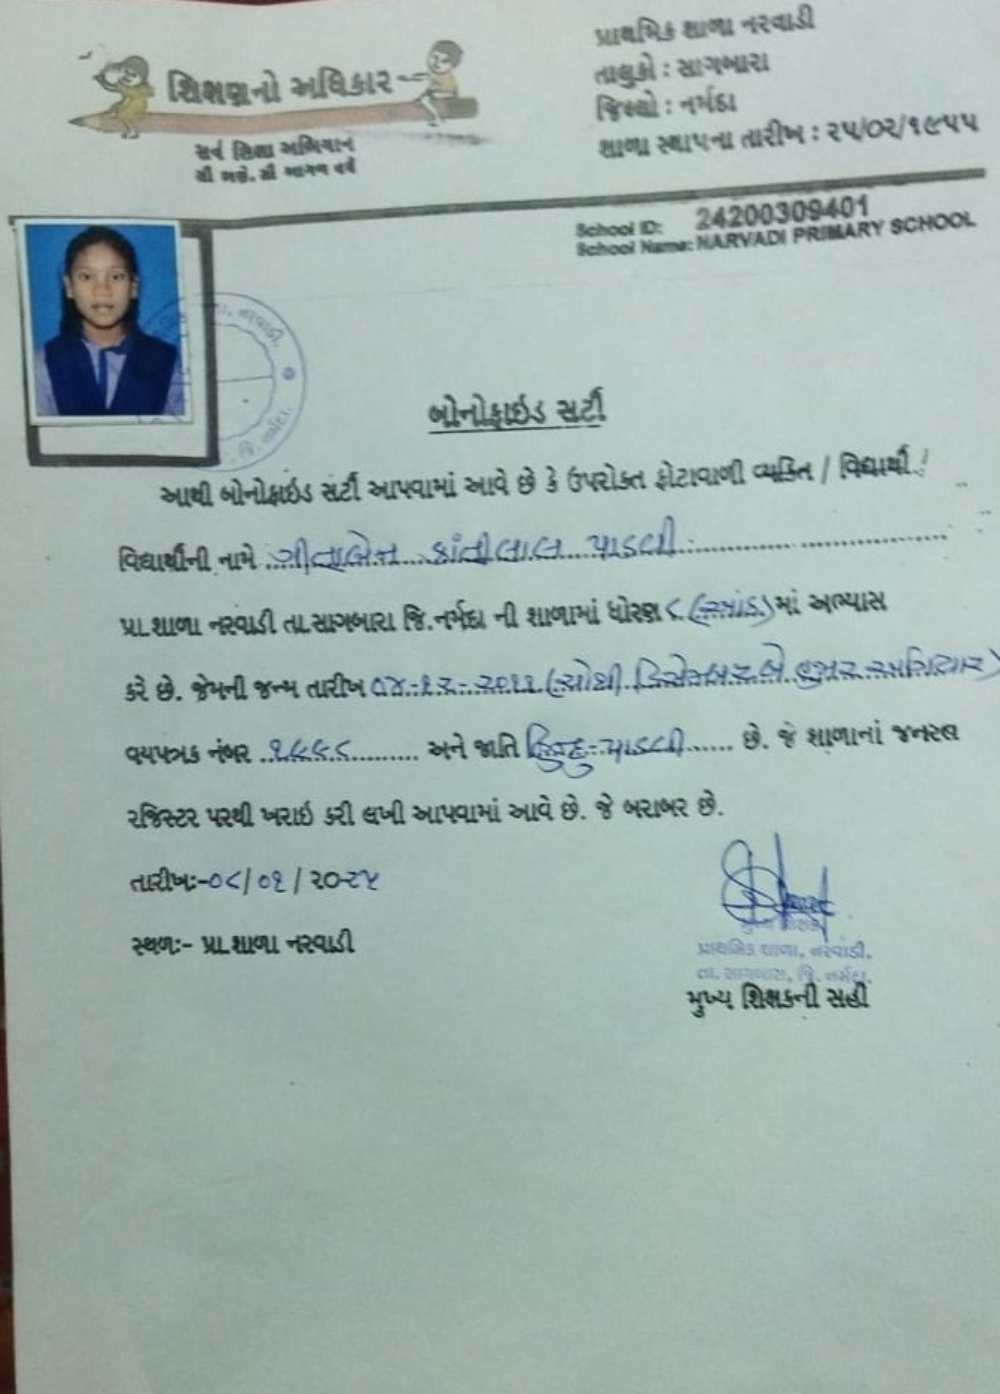 પ્રાથમિક શાળા નરવાડી
તાલુકો : સાગબારા
જિલ્લો : નર્મદા
શાળા સ્થાપના તારીખ : ૨૫/૦૨/૧૯૫૫
શિક્ષણનો અધિકાર
સર્વ શિક્ષા અભિયાન
સૌ ભણે. સૌ આગળ વધે
School ID: 24200309401
School Name: NARVADI PRIMARY SCHOOL
બોનોફાઇડ સર્ટી
આથી બોનોફાઇડ સર્ટી આપવામાં આવે છે કે ઉપરોક્ત ફોટાવાળી વ્યકિત / વિદ્યાર્થી /
વિદ્યાર્થીની નામે ગીતાબેન કાંતીલાલ પાડવી
પ્રા.શાળા નરવાડી તા.સાગબારા જિ.નર્મદા ની શાળામાં ધોરણ ૮ (આઠ) માં અભ્યાસ
કરે છે. જેમની જન્મ તારીખ ૦૪-૧૨-૨૦૧૧ (ચોથી ડિસેમ્બર બે હજાર અગિયાર)
વયપત્રક નંબર અને જાતિ હિન્દુ-પાડવી છે. જે શાળાનાં જનરલ
રજિસ્ટર પરથી ખરાઇ કરી લખી આપવામાં આવે છે. જે બરાબર છે.
તારીખ:-૦૮/૦૧/૨૦૨૫
સ્થળ:- પ્રા.શાળા નરવાડી
પ્રાથમિક શાળા, નરવાડી.
તા. સાગબારા, જિ. નર્મદા.
મુખ્ય શિક્ષકની સહી